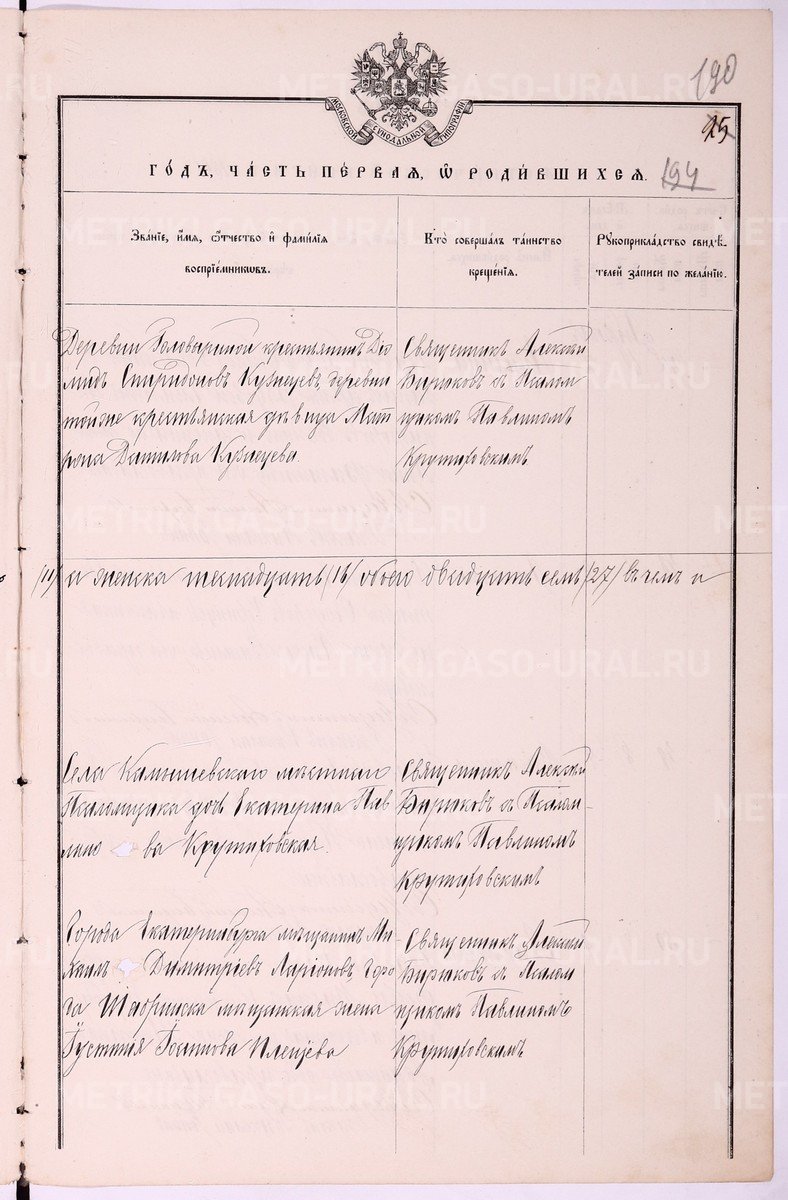 190
МОСКОВСКОЙ СѴНОДАЛЬНОЙ ТИПОГРАФІИ
25
ГО́ДЪ, ЧА́СТЬ ПЕ́РВАЯ, Ѽ РОДИ́ВШИХСЯ.
194
Зва́нїе, и҆́мя, ѻ҆́тчество и҆ фами́лїя воспрїе́мникѡвъ.
Кто̀ соверша́лъ та́инство креще́нїя.
Рꙋкоприкла́дство свидѣ́телей за́писи по жела́нїю.
Деревни Головыриной крестьянинъ Дїо
мидъ Спиридоновъ Кузнецевъ, деревни
той же крестьянская дѣвица Мат
рона Данилова Кузнецева.
Священникъ Алексѣй
Бирюковъ съ Псалом
щикомъ Павлиномъ
Крутиховскимъ
/11/ а женска шеснадцать /16/ обоего двадцать семь /27/ въ чемъ и
Села Камышевскаго мѣстнаго
Псаломщика дочь Екатерина Пав
лино ва Крутиховская.
Священникъ Алексѣй
Бирюковъ съ Псалом-
щикомъ Павлиномъ
Крутиховскимъ
Города Екатеринбурга мѣщанинъ Ми
хаилъ Димитріевъ Ларіоновъ, горо
да Шадринска мѣщанская жена
Іустинія Іоаннова Плещева
Священникъ Алексѣй
Бирюковъ съ Псалом
щикомъ Павлиномъ
Крутиховскимъ
METRIKI.GASO-URAL.RU